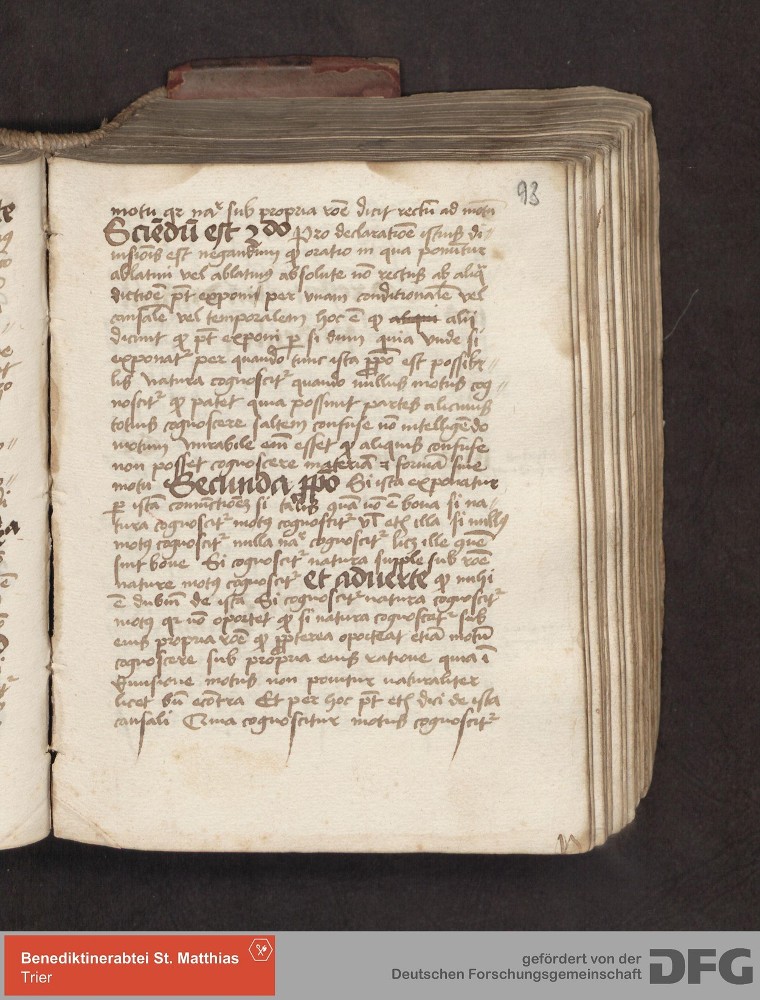 93
motu qr naͬ sub propria roē dicit rectū ad motū
Sciēdū est 2do Pro declaratōe istius di-
uisiōis est negandum qꝫ oratio in qua ponitur
ablatiui vel ablatiuꝰ absolute nō rectus ab aliq̄
dictōe pn̄t exponi per vnam conditionalē vel
causalē vel temporalem hoc ē qꝫ alii
dicunt qꝫ pn̄t exponi ꝑ si dum quia Vnde si
exponatͬ per quando tunc ista ppō est possibi-
lis Natura cognoscitͬ quando nullus motus cog-
noscitͬ qꝫ patet quia possunt partes alicuius
totius cognoscere saltem confuse nō intelligēdo
motum mirabile eīn esset qꝫ aliquis confuse
non posset cognoscere materiā et formā sine
motu Secunda ppō Si ista exponatur
ꝑ istā coniunctionē si talis quā nō ē bona si na-
tura cognoscitͬ motꝰ cognoscitͬ vl̄ etiā illa si nullꝰ
motꝰ cognoscitͬ nulla naͬ cognoscitͬ licꝫ ille quē
sint bone Si cognoscitͬ natura supple sub roē
nature motꝰ cognoscitͬ Et aduerte qꝫ mihi
ē dubiū de ista Si cognoscitͬ natura cognoscitͬ
motꝰ qr nō oportet qꝫ si natura cognoscatͬ sub
eius propria roē qꝫ ppterea oporteat etiā motū
cognoscere sub propria eius ratione quia ī
diuisione motus non ponitur naturaliter
licet bn̄ ecōtra Et per hoc pt̄ etiā dici de ista
causali Quia cognoscitur motus cognoscitͬ
Benediktinerabtei St. Matthias
Trier
gefördert von der
Deutschen Forschungsgemeinschaft
DFG